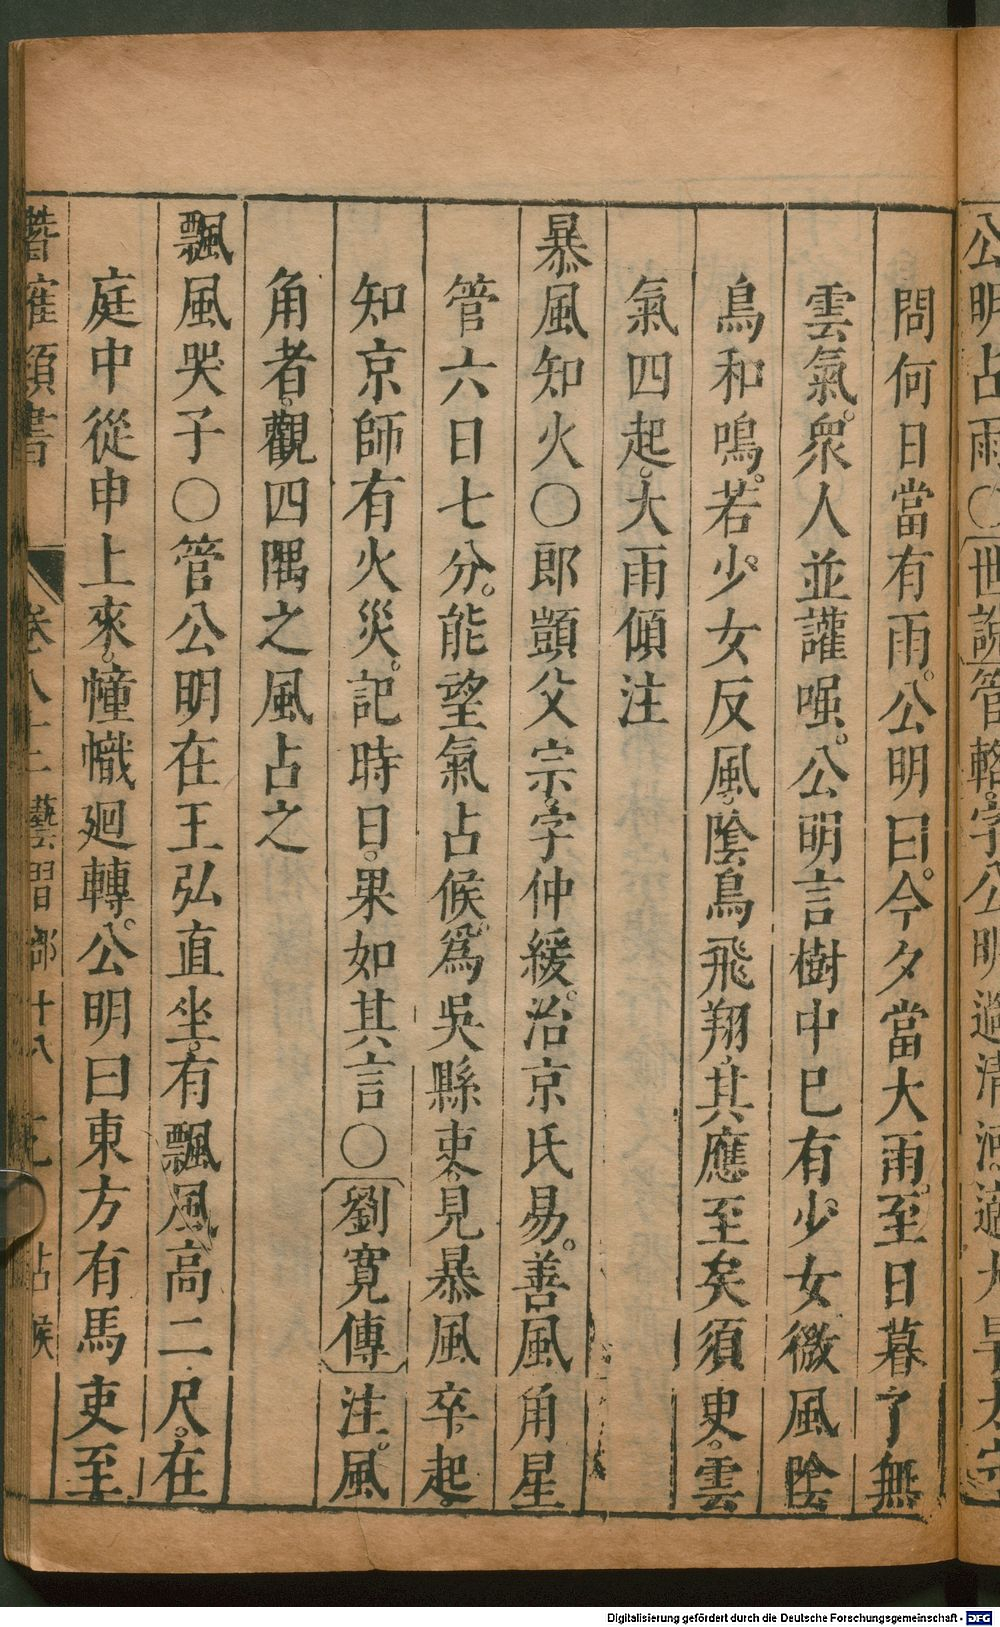 公明占雨〇世說管輅字公明過清河適大旱太守
問何日當有雨公明曰今夕當大雨至日暮了無
雲氣衆人並讙嗤公明言樹中已有少女微風陰
鳥和鳴若少女反風陰鳥飛翔其應至矣須臾雲
氣四起大雨傾注
暴風知火〇郎顗父宗字仲緩治京氏易善風角星
管六日七分能望氣占候爲吳縣吏見暴風卒起
知京師有火災記時日果如其言〇劉寬傳注風
角者觀四隅之風占之
飄風哭子〇管公明在王弘直坐有飄風高二尺在
庭中從申上來幢幟廻轉公明曰東方有馬吏至
類書 卷八十二 藝習部十八 占候
Digitalisierung gefördert durch die Deutsche Forschungsgemeinschaft - DFG